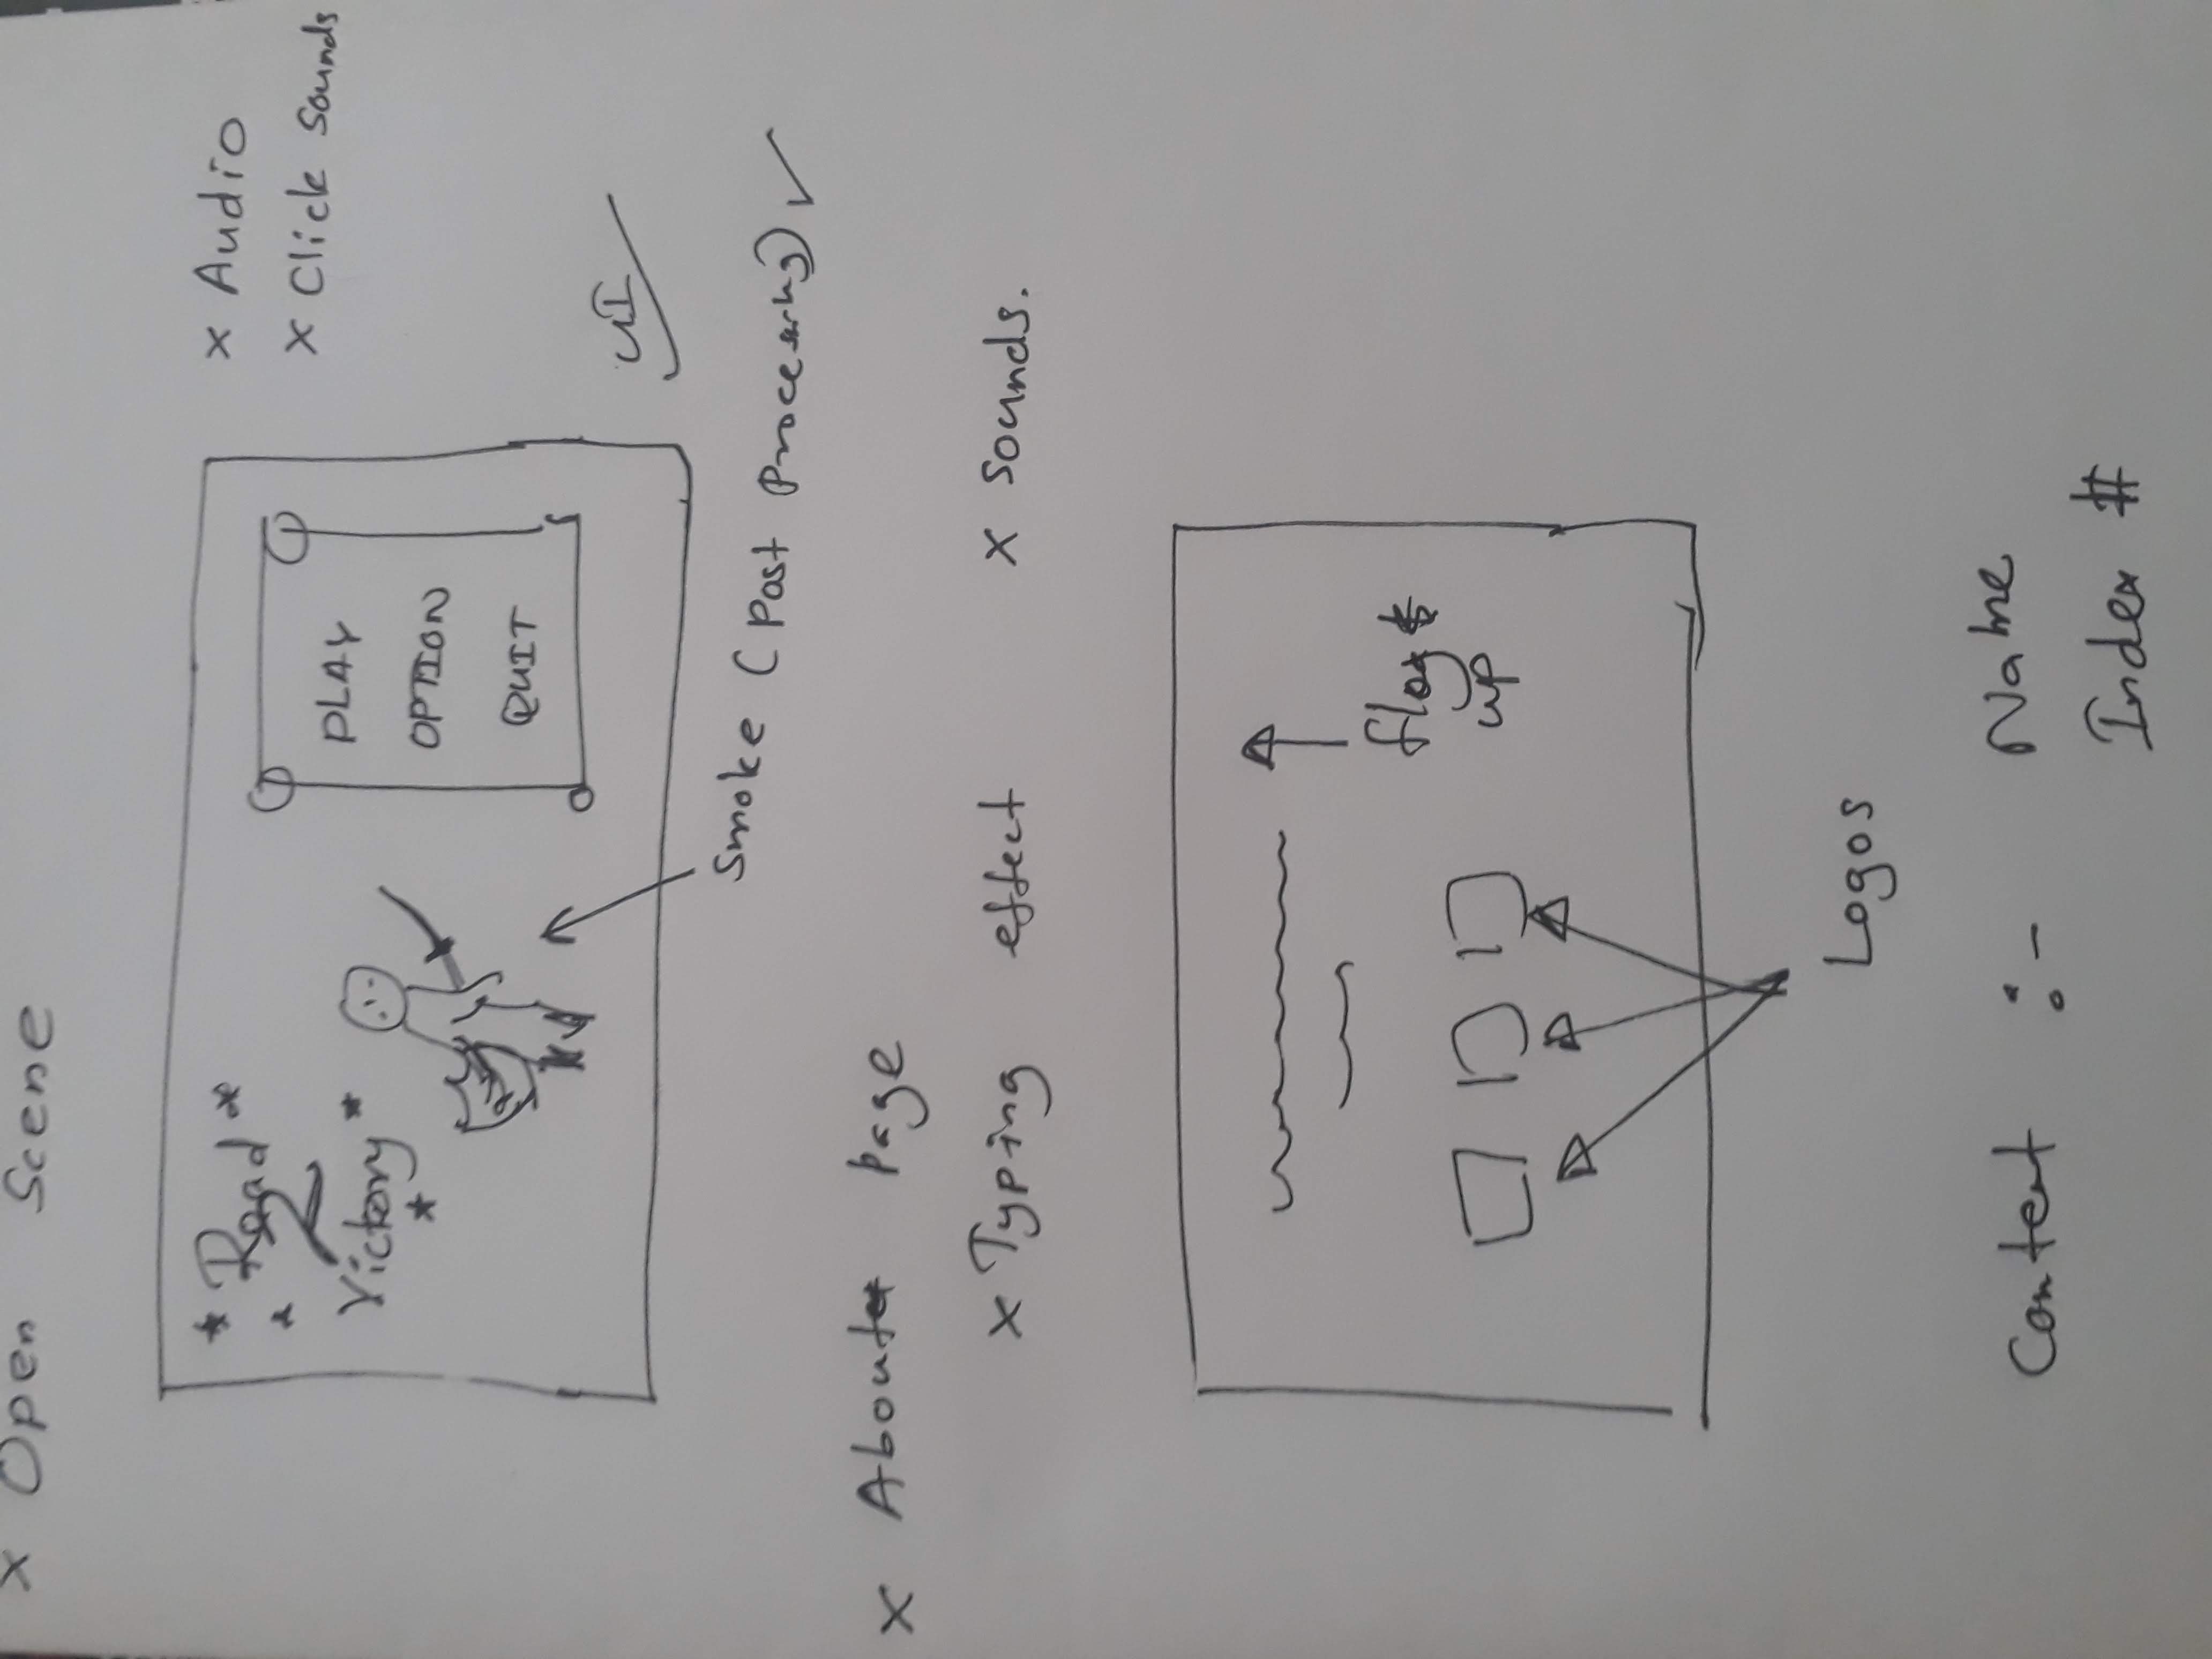 x Open Scene
* Road *
* 2
Victory *
*
PLAY
OPTION
QUIT
x Audio
x Click Sounds
UI
Smoke (Post Processing) ✓
x About Page
x Typing effect x Sounds.
up
Logos
Content :- Name
Index #